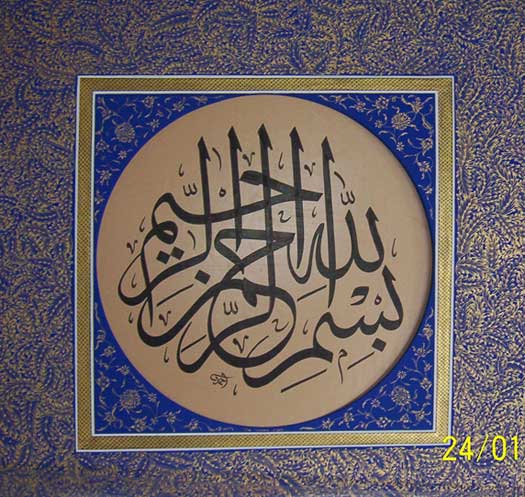 بِسْمِ اللّٰهِ الرَّحْمٰنِ الرَّحِيمِ
24/01